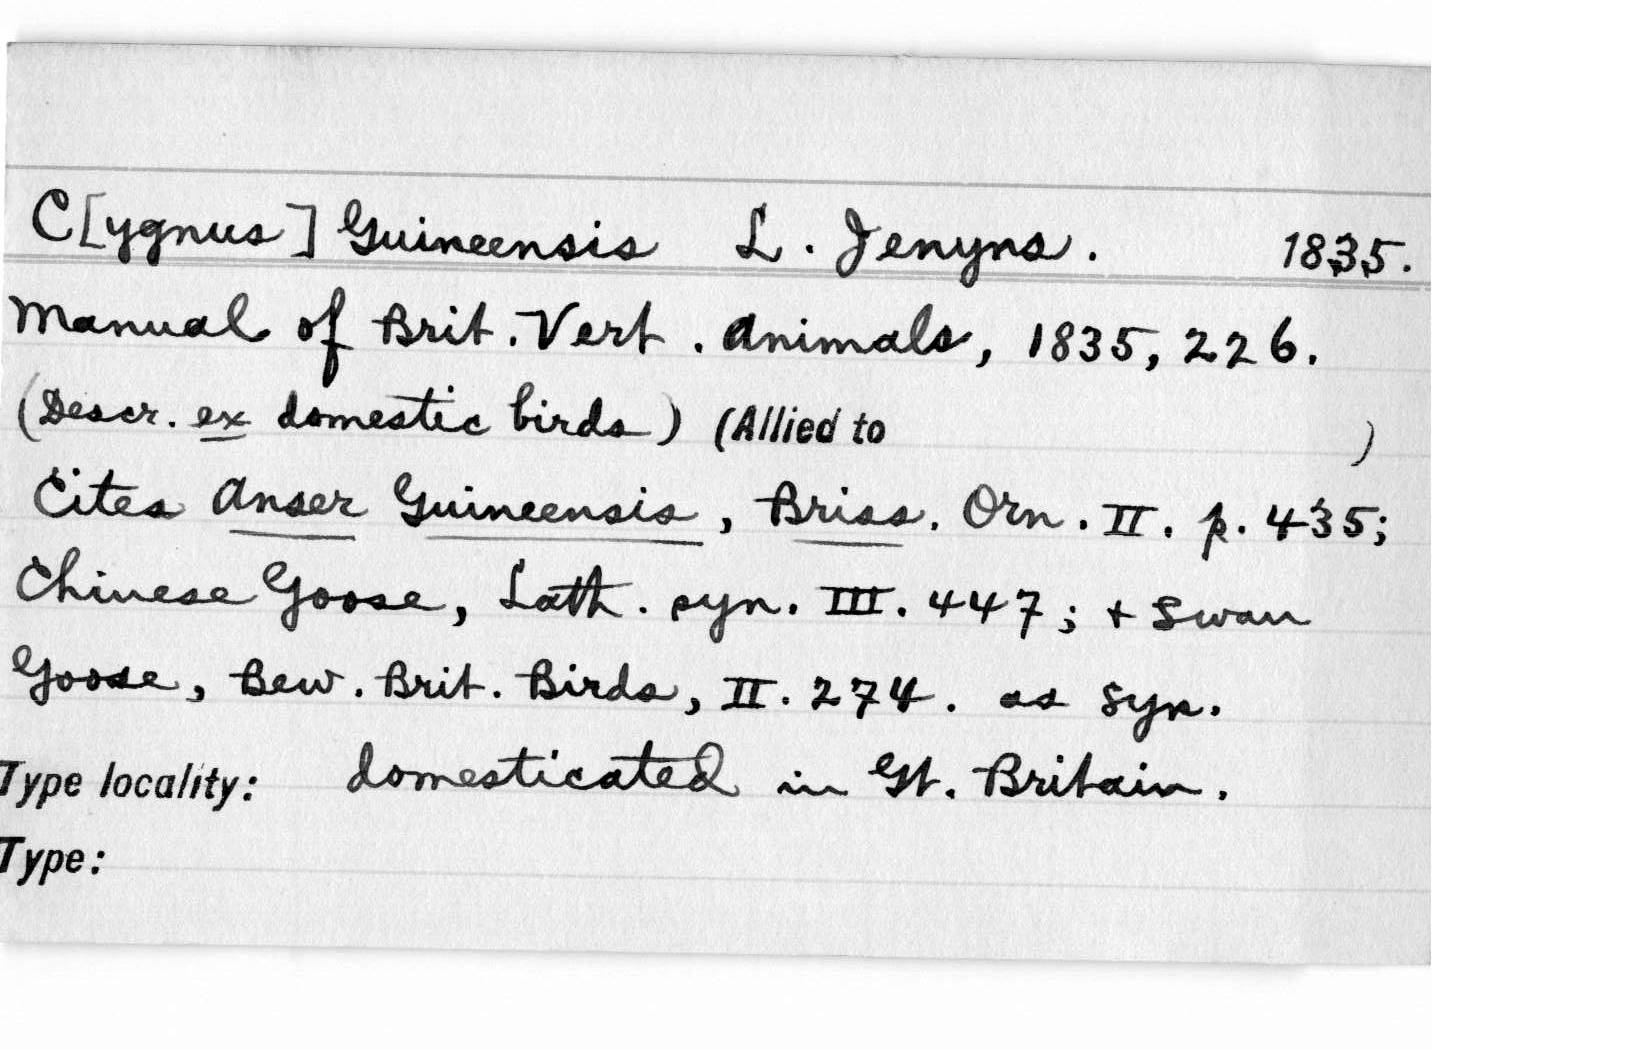 C[ygnus] Guineensis L. Jenyns. 1835.
Manual of Brit. Vert. Animals, 1835, 226.
(Descr. ex domestic birds) (Allied to )
Cites Anser Guineensis, Briss. Orn. II. p. 435;
Chinese Goose, Lath. syn. III. 447; + Swan
Goose, Bew. Brit. Birds, II. 274. as syn.
Type locality: domesticated in Gt. Britain.
Type: